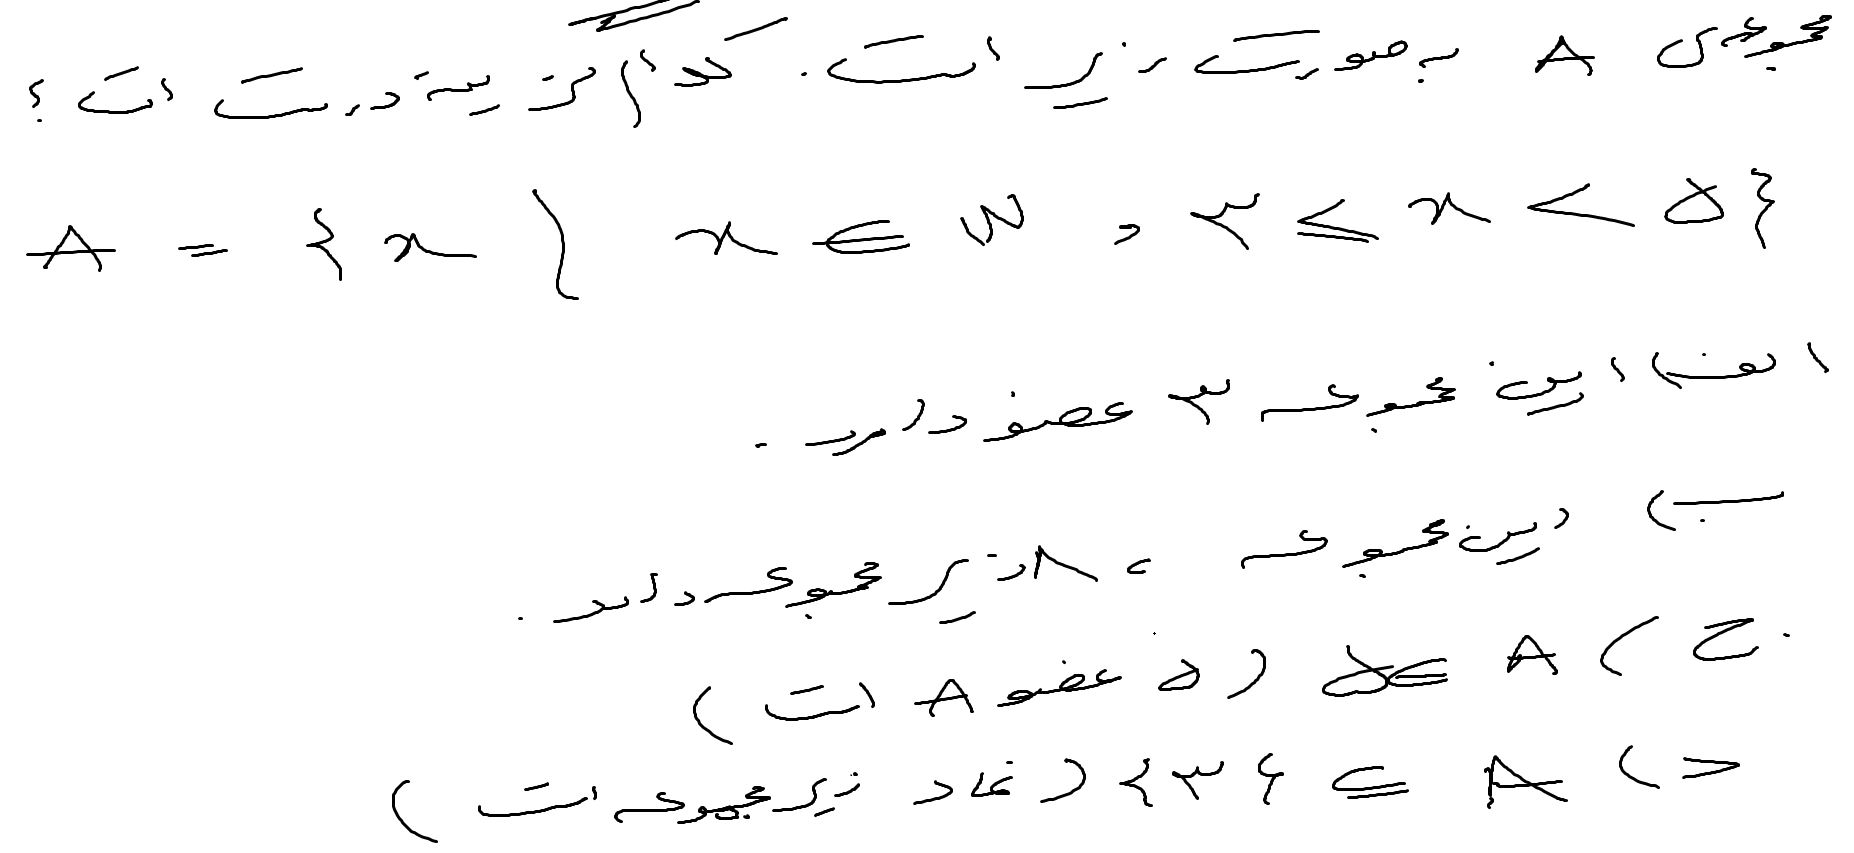 مجموعه‌ی A به صورت زیر است. کدام گزینه درست است؟
A = {x | x ∈ W , ۳ ≤ x < ۵}
الف) این مجموعه ۳ عضو دارد.
ب) این مجموعه ، ۸ زیر مجموعه دارد.
ج) ۵ ∈ A (۵ عضو A است)
د) {۳} ⊆ A (نماد زیر مجموعه است)